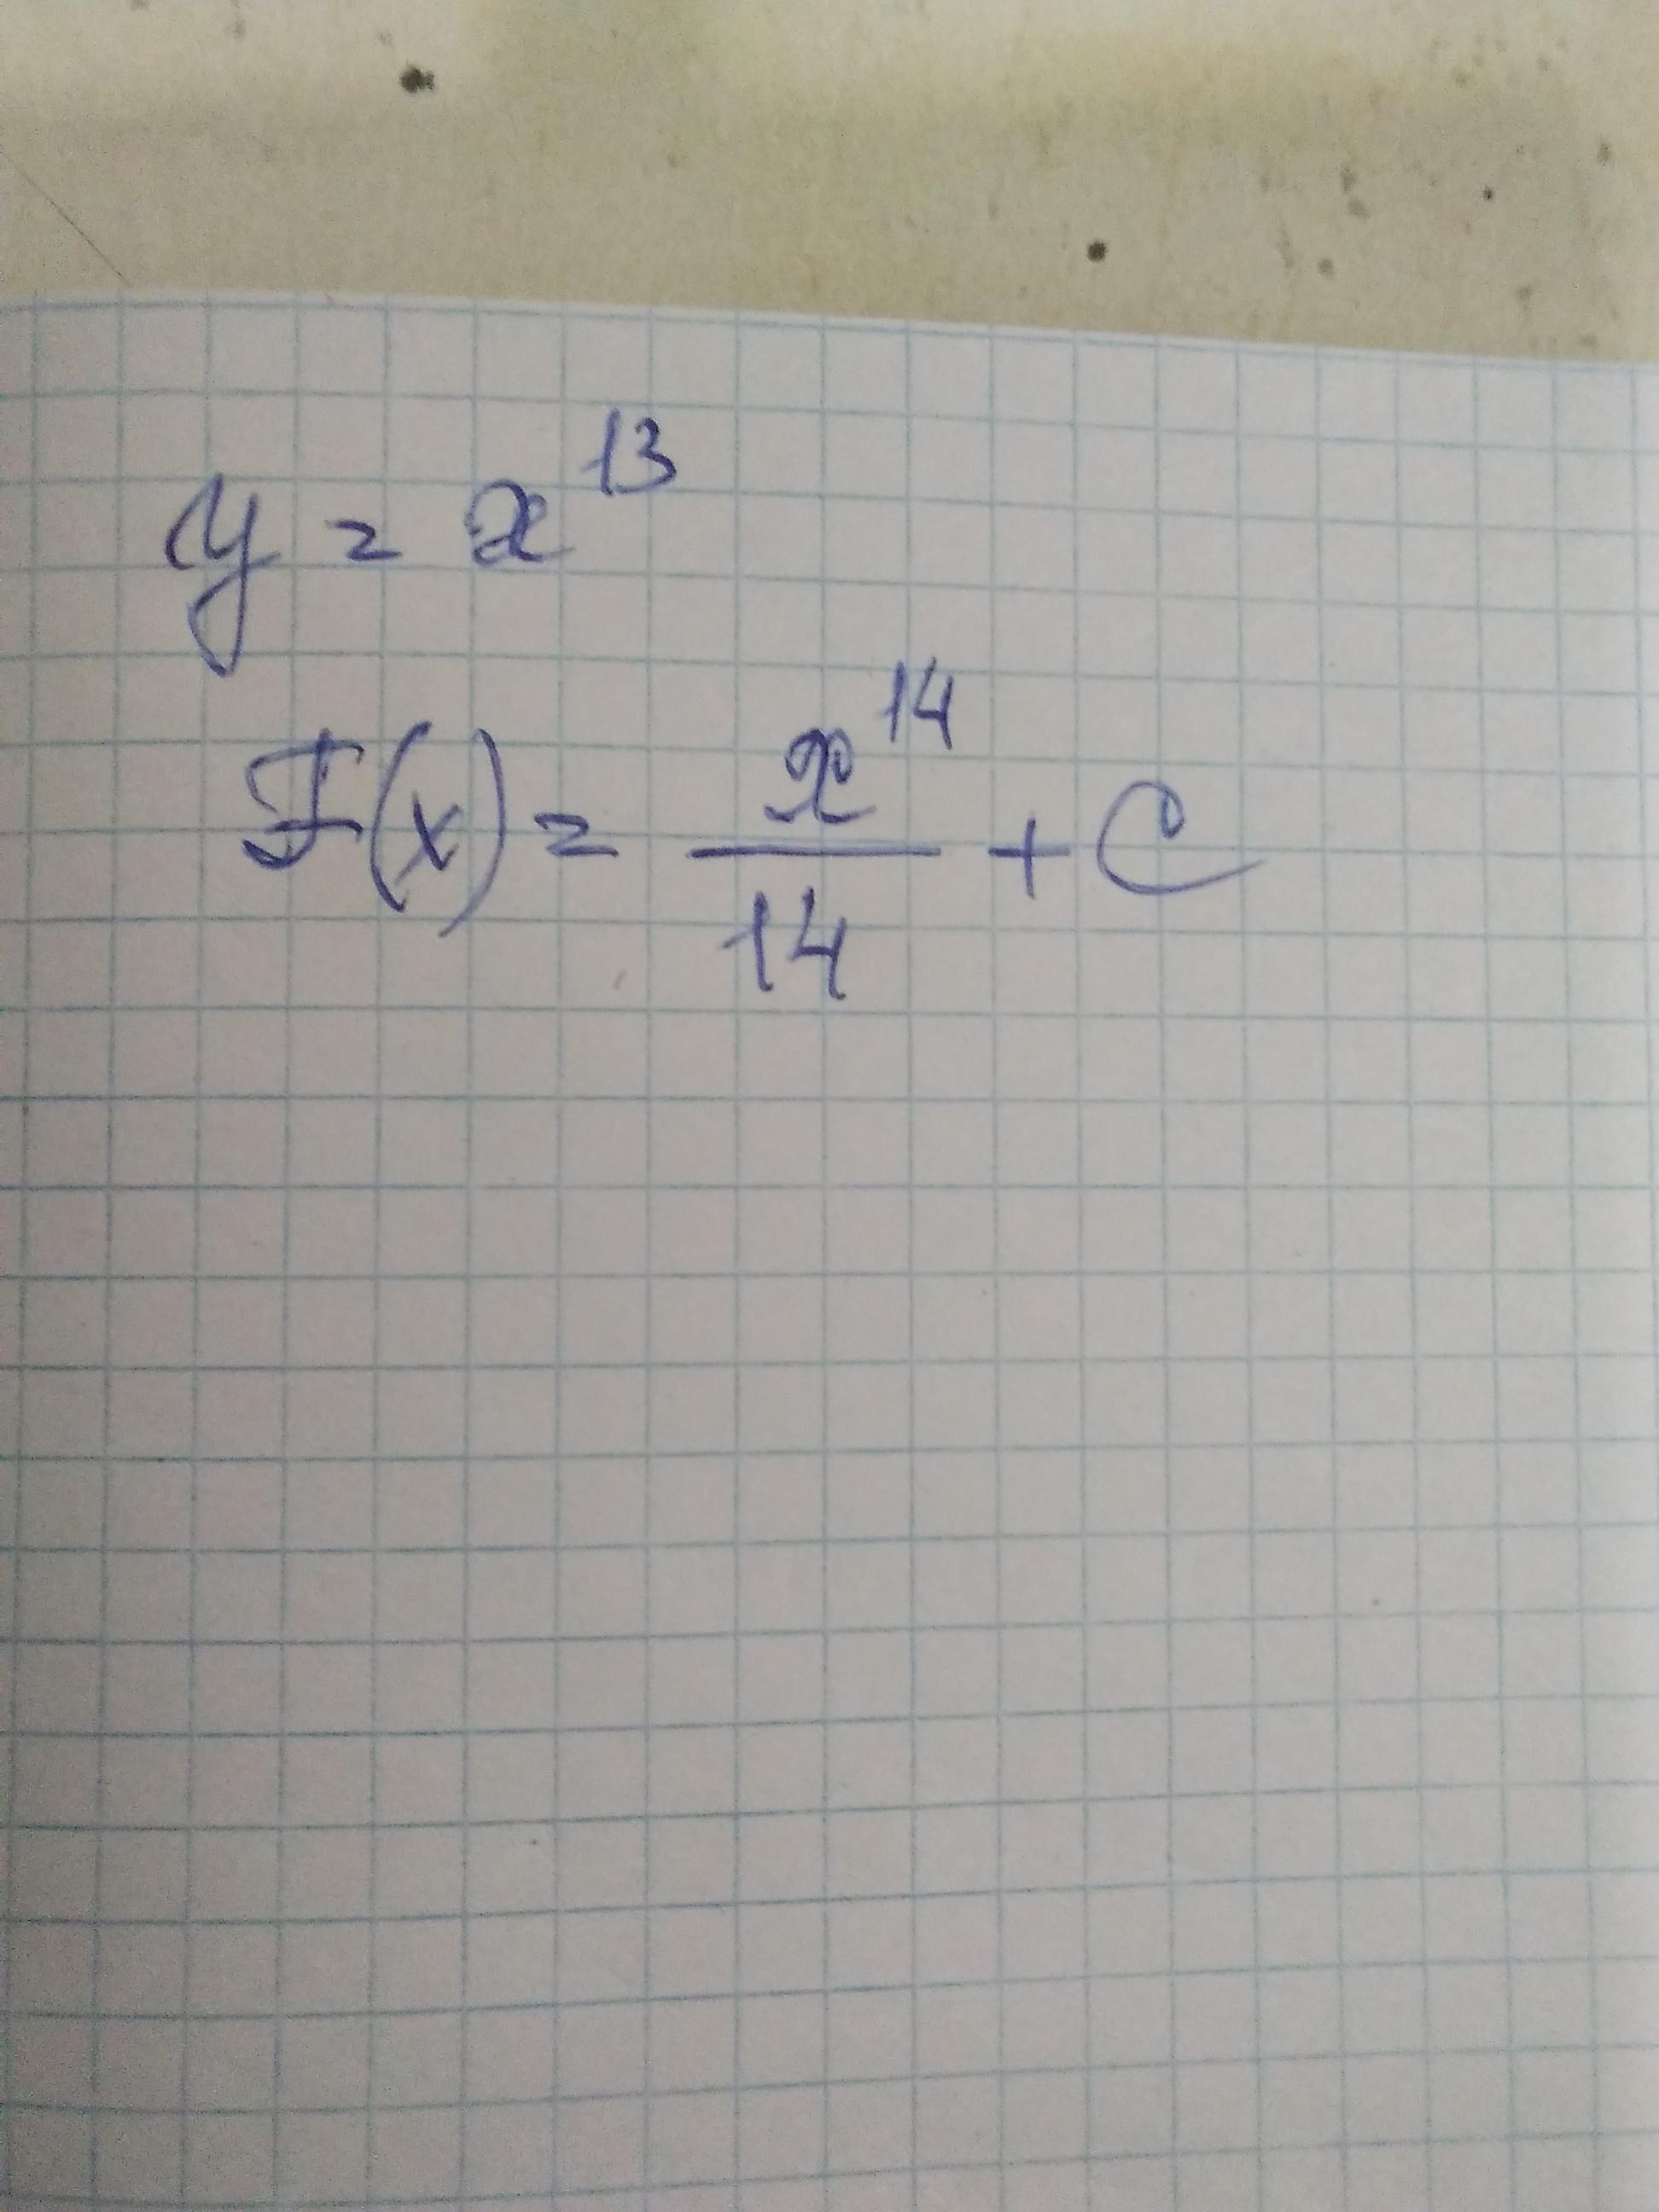 y = x^13
F(x) = x^14/14 + C